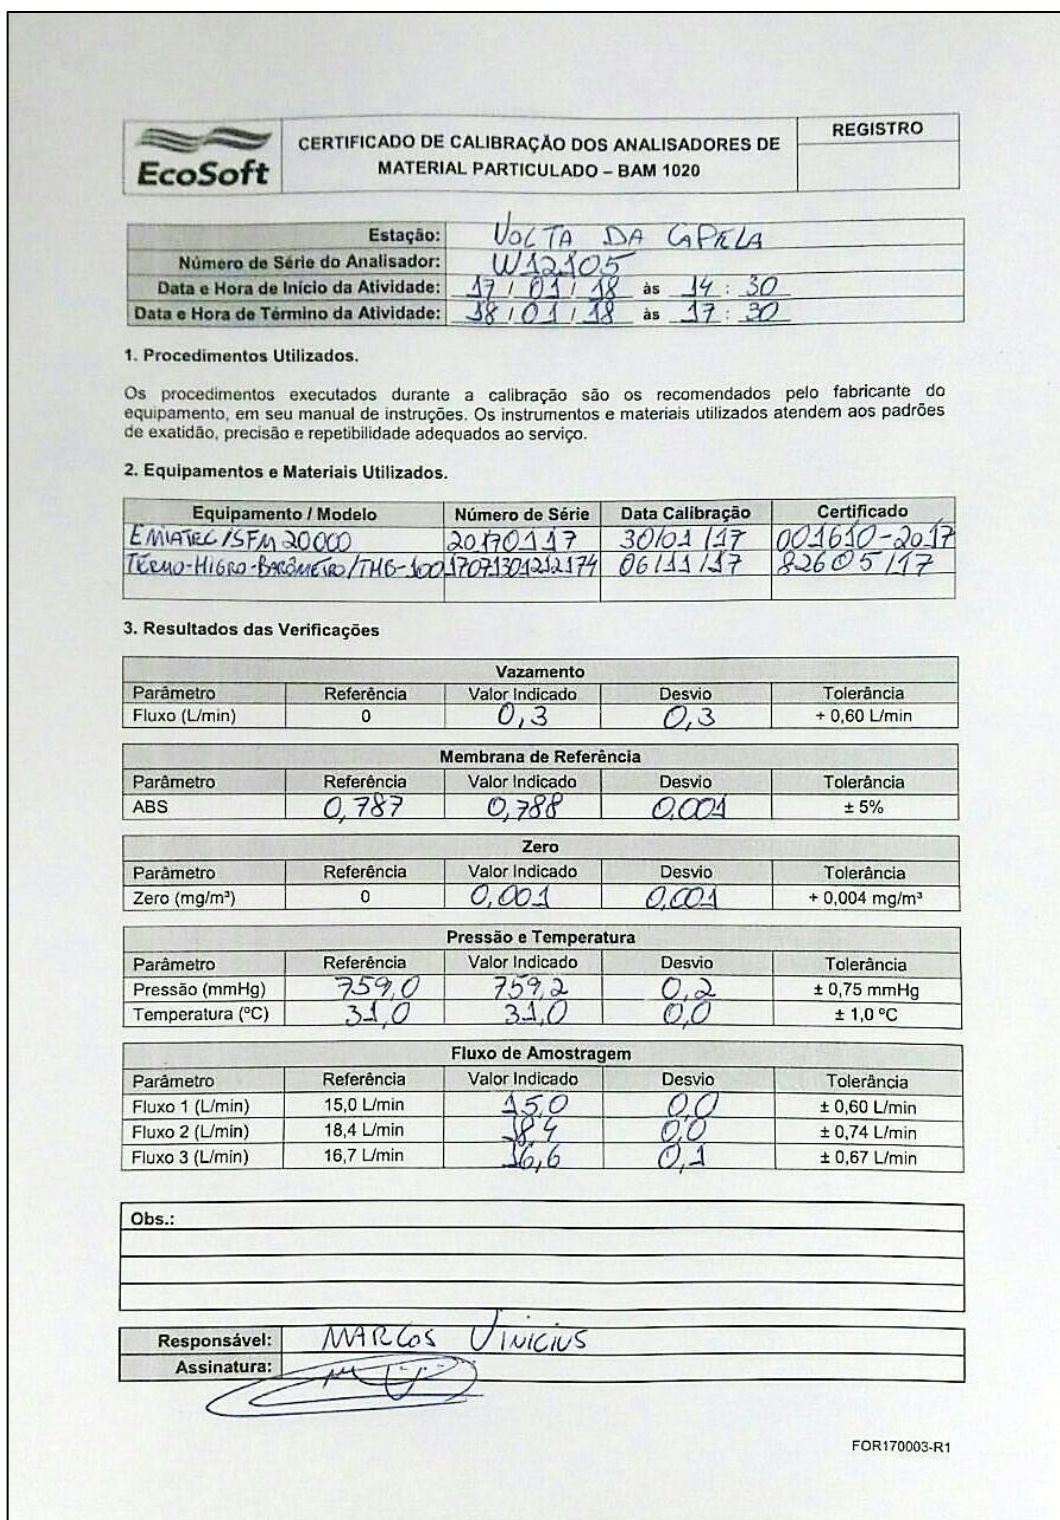 EcoSoft
CERTIFICADO DE CALIBRAÇÃO DOS ANALISADORES DE
MATERIAL PARTICULADO – BAM 1020
REGISTRO
Estação: VOLTA DA CAPELA
Número de Série do Analisador: W12105
Data e Hora de Início da Atividade: 17/01/18 às 14:30
Data e Hora de Término da Atividade: 18/01/18 às 17:30
1. Procedimentos Utilizados.
Os procedimentos executados durante a calibração são os recomendados pelo fabricante do
equipamento, em seu manual de instruções. Os instrumentos e materiais utilizados atendem aos padrões
de exatidão, precisão e repetibilidade adequados ao serviço.
2. Equipamentos e Materiais Utilizados.
Equipamento / Modelo Número de Série Data Calibração Certificado
EMIATEC/SFM 20000 20170117 30/01/17 001610-2017
TERMO-HIGRO-BARÔMETRO/THB-100 17071301212174 06/11/17 82605/17
3. Resultados das Verificações
Vazamento
Parâmetro Referência Valor Indicado Desvio Tolerância
Fluxo (L/min) 0 0,3 0,3 + 0,60 L/min
Membrana de Referência
Parâmetro Referência Valor Indicado Desvio Tolerância
ABS 0,787 0,788 0,001 ± 5%
Zero
Parâmetro Referência Valor Indicado Desvio Tolerância
Zero (mg/m³) 0 0,001 0,001 + 0,004 mg/m³
Pressão e Temperatura
Parâmetro Referência Valor Indicado Desvio Tolerância
Pressão (mmHg) 759,0 759,2 0,2 ± 0,75 mmHg
Temperatura (ºC) 31,0 31,0 0,0 ± 1,0 ºC
Fluxo de Amostragem
Parâmetro Referência Valor Indicado Desvio Tolerância
Fluxo 1 (L/min) 15,0 L/min 15,0 0,0 ± 0,60 L/min
Fluxo 2 (L/min) 18,4 L/min 18,4 0,0 ± 0,74 L/min
Fluxo 3 (L/min) 16,7 L/min 16,6 0,1 ± 0,67 L/min
Obs.:
Responsável: MARCOS VINICIUS
Assinatura:
FOR170003-R1